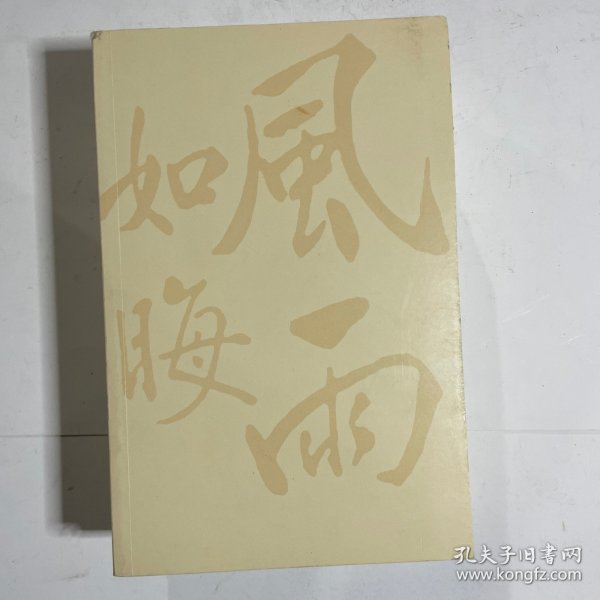 風雨
如晦
孔夫子旧書网
www.kongfz.com